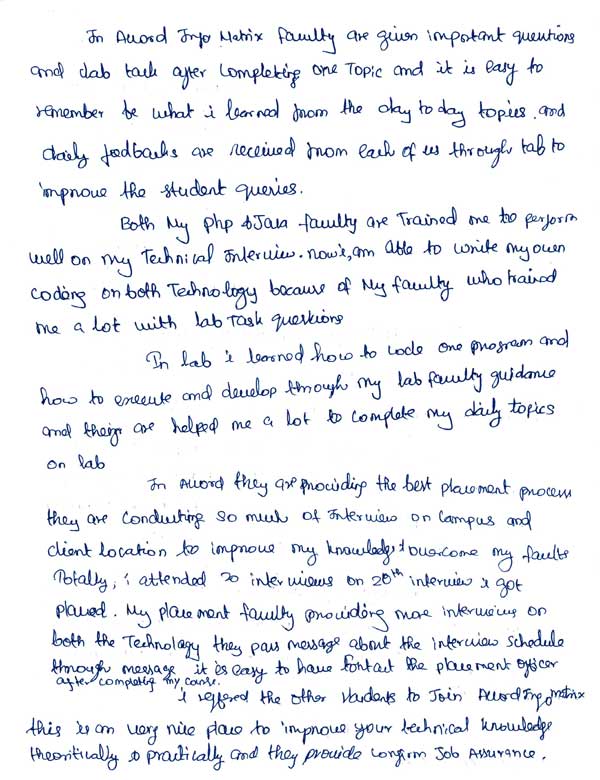 In Accord Info Matrix faculty are given important questions
and lab task after completing one Topic and it is easy to
remember be what i learned from the day to day topics. and
daily feedbacks are received from each of us through tab to
improve the student queries.
Both My php & Java faculty are Trained me to perform
well on my Technical Interview. now i, am able to write my own
coding on both Technology because of My faculty who trained
me a lot with lab Task questions
In lab i learned how to code one program and
how to execute and develop through my lab faculty guidance
and are helped me a lot to complete my daily topics
on lab
In Accord they are providing the best placement process
they are conducting so much of Interview on campus and
client location to improve my knowledge & overcome my faults
Totally, i attended 20 interviews on 20th interview i got
placed. My placement faculty providing more interviews on
both the Technology they pass message about the interview schedule
through message it is easy to have contact the placement officer
after completing my course.
i reffered the other students to Join Accord Info matrix
this is an very nice place to improve your technical knowledge
theoritically & practically and they provide confirm Job Assurance.